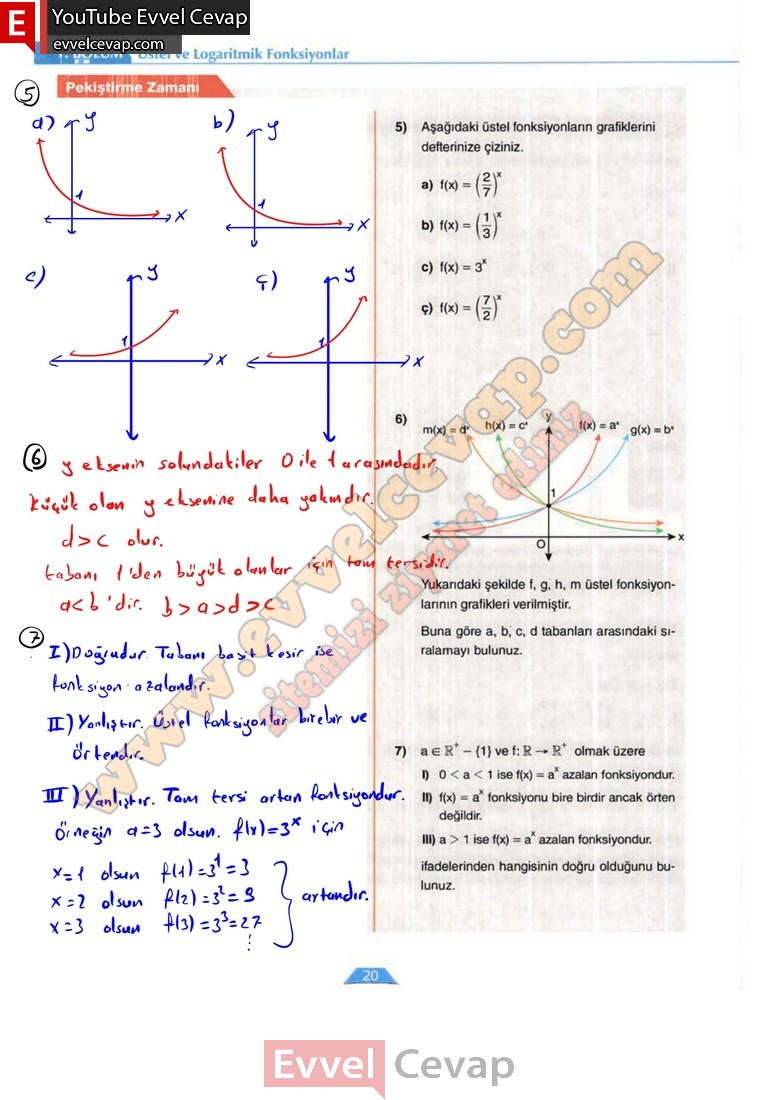 E YouTube Evvel Cevap
evvelcevap.com
1. BÖLÜM Üstel ve Logaritmik Fonksiyonlar
Pekiştirme Zamanı
5
a) y
1
x
b) y
1
x
c) y
1
x
ç) y
1
x
6 y eksenin solundakiler 0 ile 1 arasındadır.
Küçük olan y eksenine daha yakındır.
d>c olur.
tabanı 1'den büyük olanlar için tam tersidir.
a<b 'dir. b>a>d>c
7
I) Doğrudur. Tabanı basit kesir ise
fonksiyon azalandır.
II) Yanlıştır. Üstel fonksiyonlar birebir ve
örtendir.
III) Yanlıştır. Tam tersi artan fonksiyondur.
Örneğin a=3 olsun. f(x)=3^x için
x=1 olsun f(1)=3^1=3
x=2 olsun f(2)=3^2=9
x=3 olsun f(3)=3^3=27
⋮
artandır.
5) Aşağıdaki üstel fonksiyonların grafiklerini
defterinize çiziniz.
a) f(x) = (2/7)^x
b) f(x) = (1/3)^x
c) f(x) = 3^x
ç) f(x) = (7/2)^x
6)
m(x) = d^x h(x) = c^x y f(x) = a^x g(x) = b^x
1
O x
Yukarıdaki şekilde f, g, h, m üstel fonksiyon-
larının grafikleri verilmiştir.
Buna göre a, b, c, d tabanları arasındaki sı-
ralamayı bulunuz.
7) a ∈ ℝ⁺ – {1} ve f: ℝ → ℝ⁺ olmak üzere
I) 0 < a < 1 ise f(x) = a^x azalan fonksiyondur.
II) f(x) = a^x fonksiyonu bire birdir ancak örten
değildir.
III) a > 1 ise f(x) = a^x azalan fonksiyondur.
ifadelerinden hangisinin doğru olduğunu bu-
lunuz.
www.evvelcevap.com
sitemizi ziyaret ediniz
20
Evvel Cevap